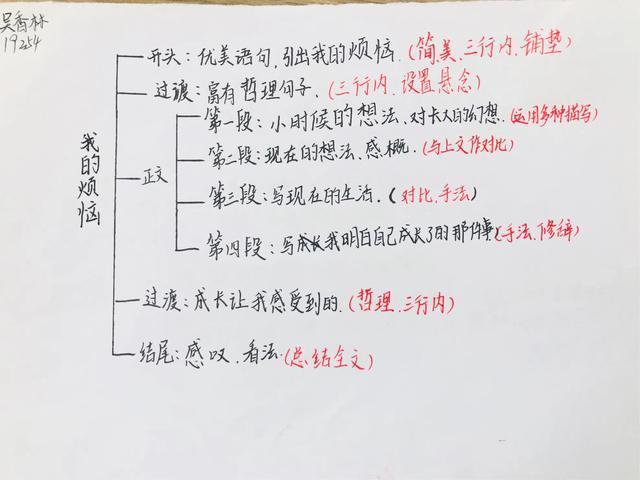 吴香林
19254
开头:优美语句,引出我的烦恼.(简、美、三行内、铺垫)
过渡:富有哲理句子.(三行内、设置悬念)
我的烦恼
正文
第一段:小时候的想法、对长大的幻想.(运用多种描写)
第二段:现在的想法、感概.(与上文作对比)
第三段:写现在的生活.(对比、手法)
第四段:写成长我明白自己成长了的那件事(手法、修辞)
过渡:成长让我感受到的.(哲理、三行内)
结尾:感叹、看法.(总结全文)